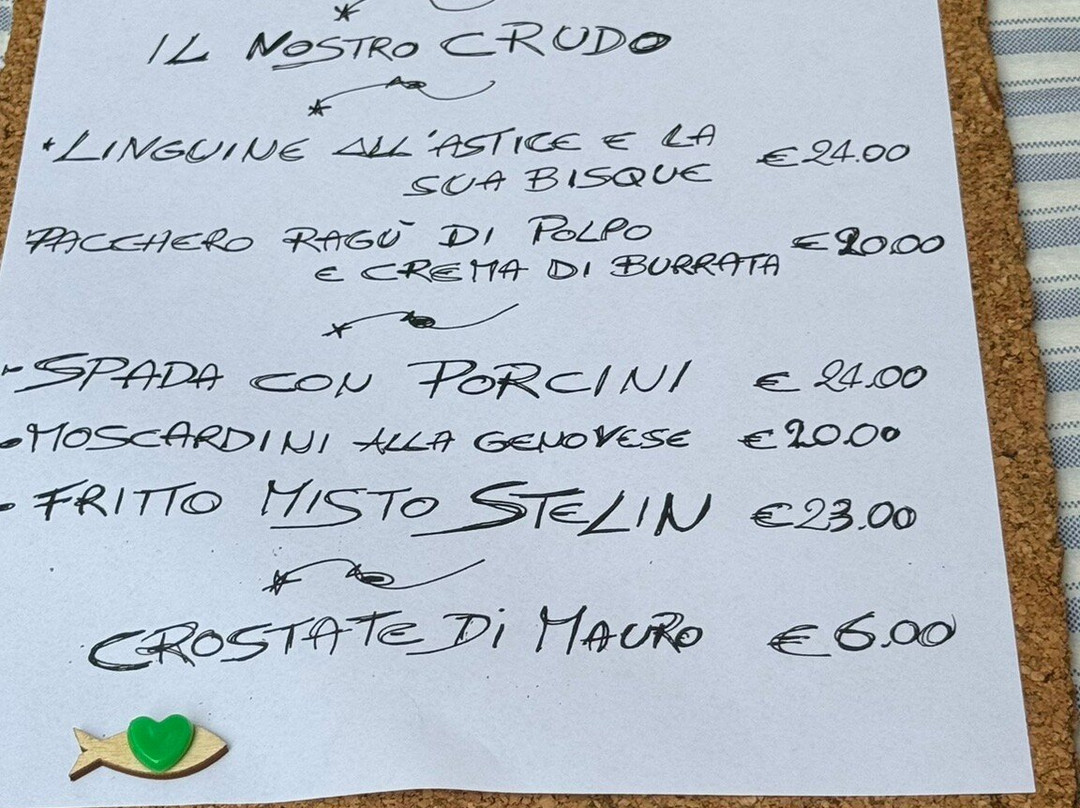 IL NOSTRO CRUDO
LINGUINE ALL'ASTICE E LA €24.00
SUA BISQUE
PACCHERO RAGÙ DI POLPO €20.00
E CREMA DI BURRATA
- SPADA CON PORCINI € 24.00
• MOSCARDINI ALLA GENOVESE €20.00
- FRITTO MISTO STELIN €23.00
CROSTATE DI MAURO €6.00